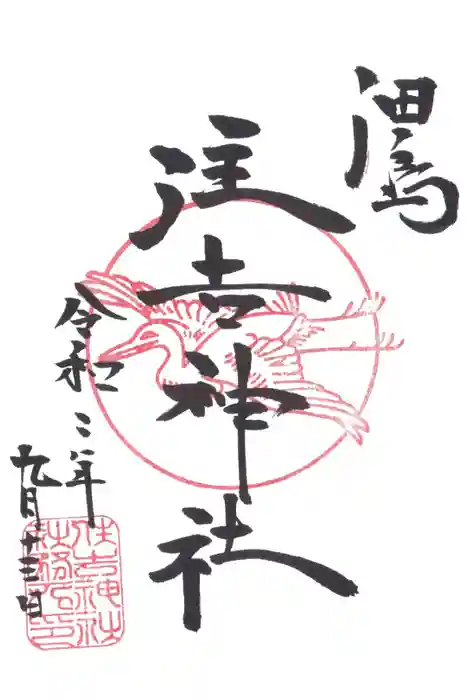 佃島
住吉神社
令和二年
九月十三日
住吉神社
社務所印